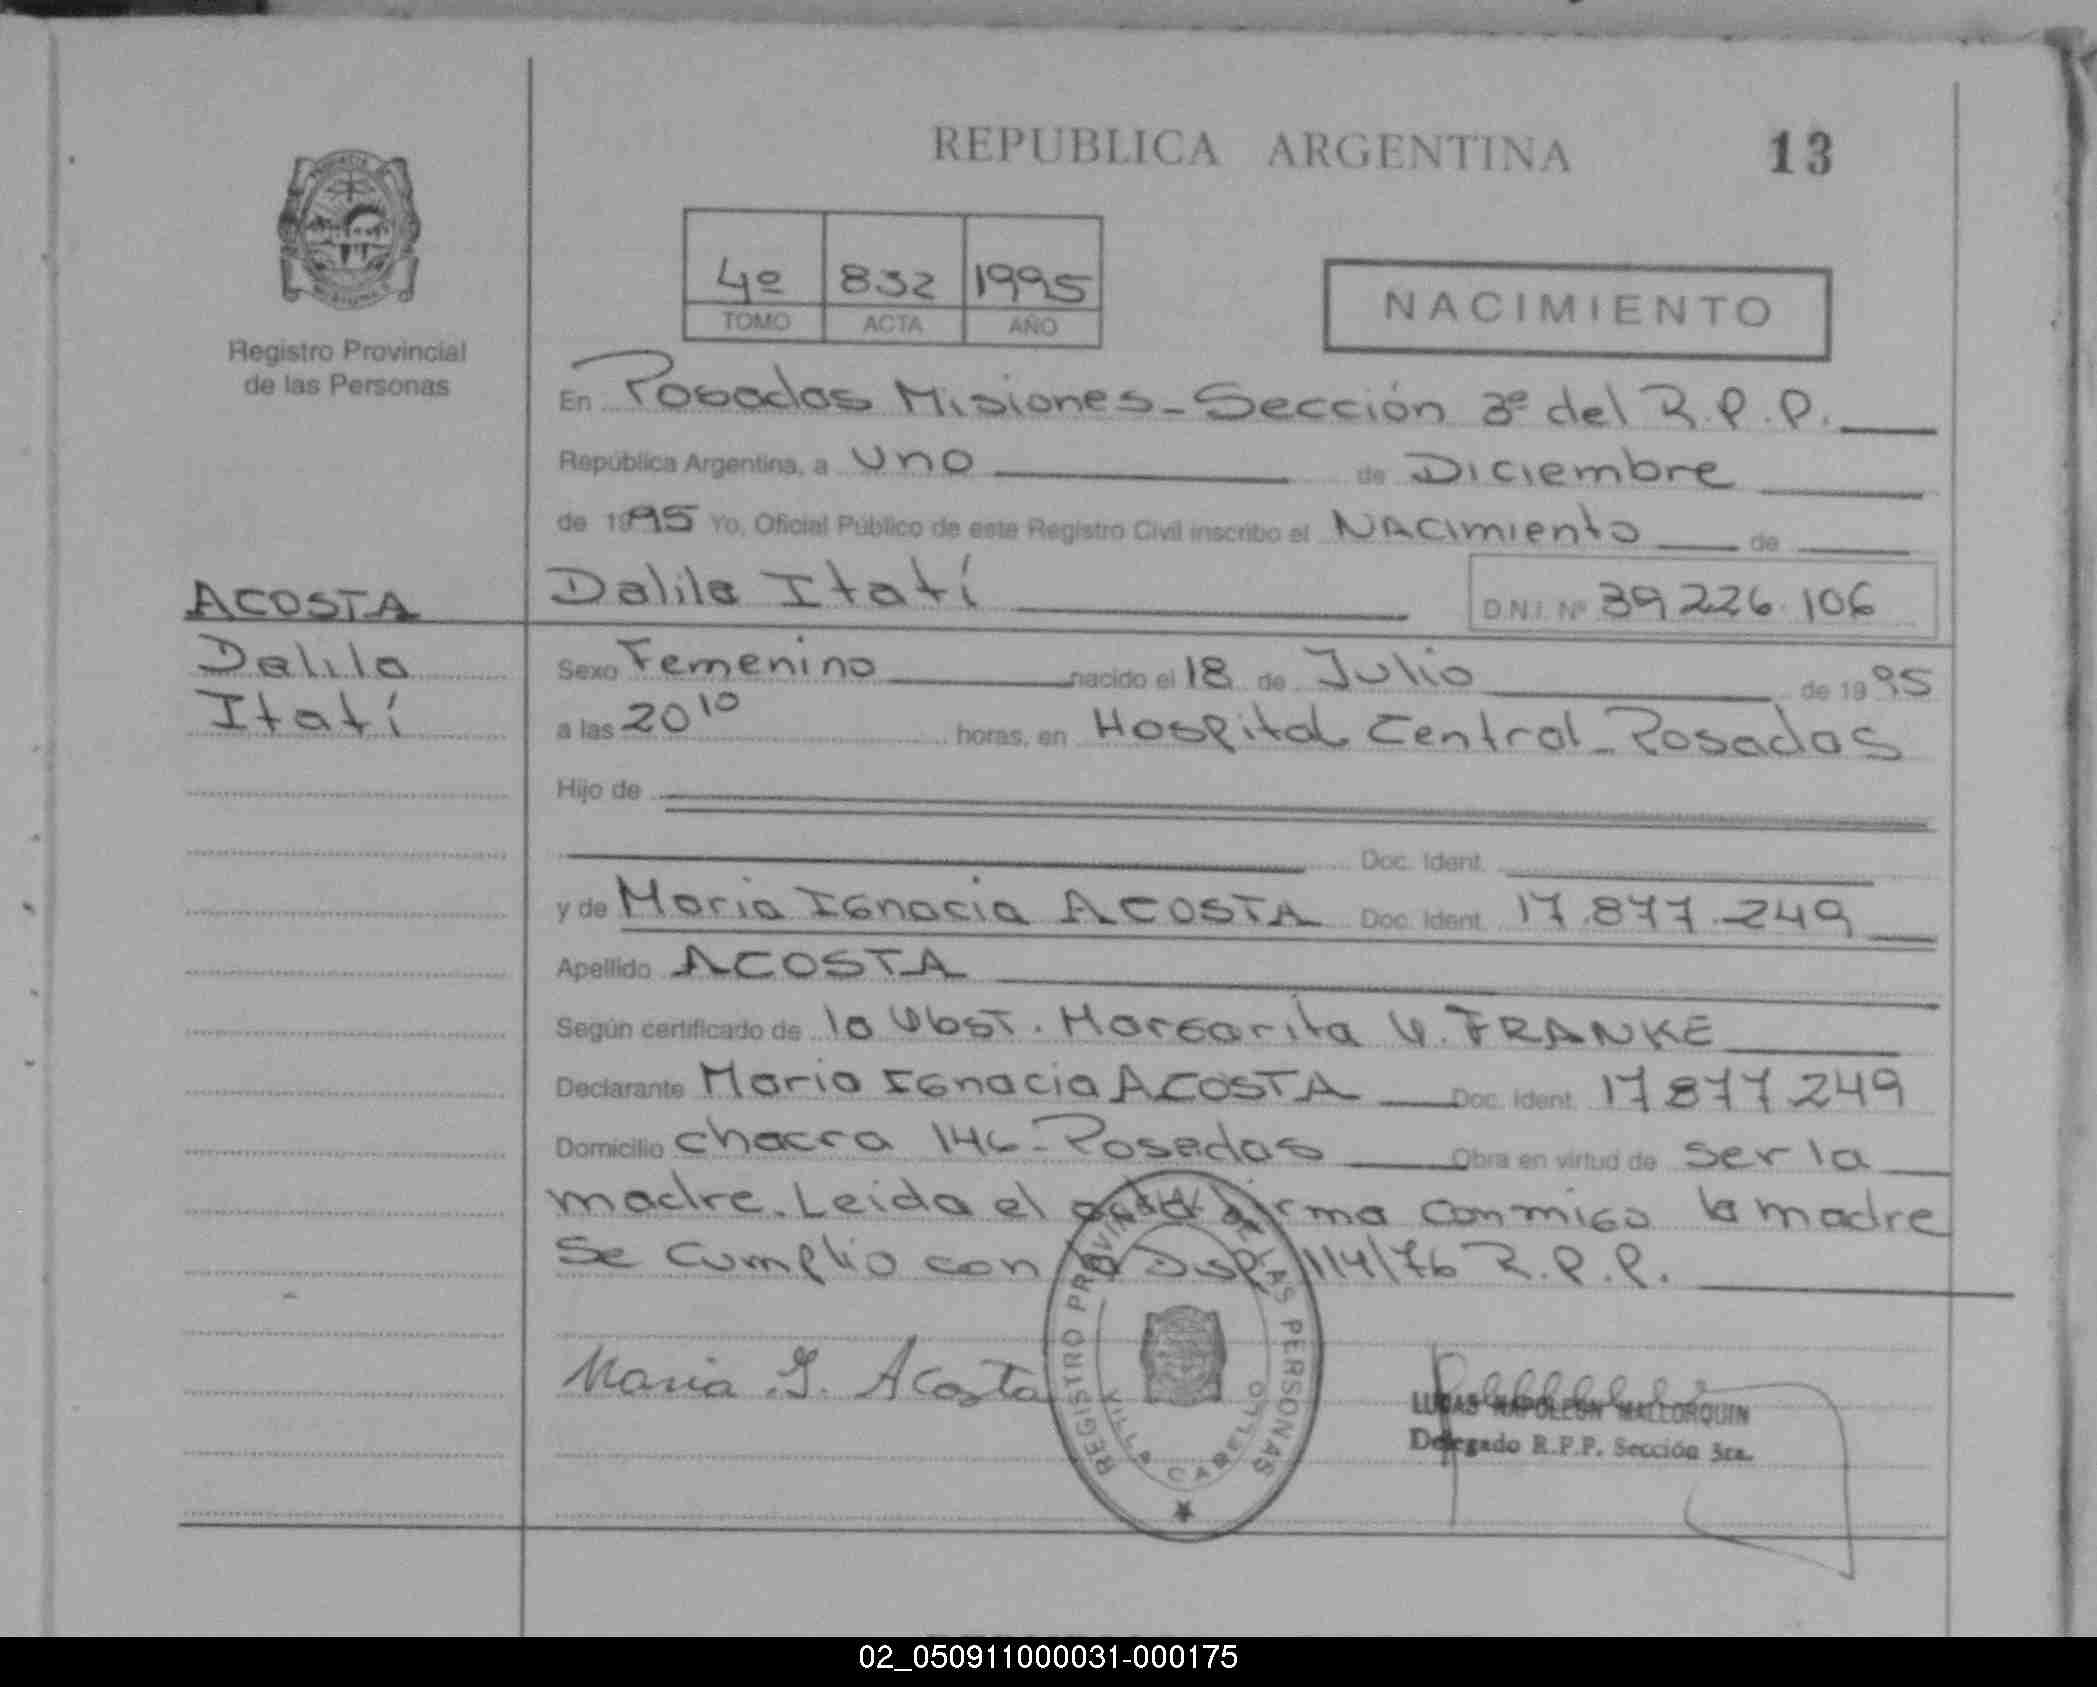 REPUBLICA ARGENTINA 13
4º 832 1995
TOMO ACTA AÑO
NACIMIENTO
Registro Provincial
de las Personas
En Posadas Misiones - Sección 3ª del R.P.P.
República Argentina, a uno de Diciembre
de 1995 Yo, Oficial Público de este Registro Civil inscribo el Nacimiento de
ACOSTA
Dalila
Itatí
Dalila Itatí D.N.I. Nº 39.226.106
Sexo Femenino nacido el 18 de Julio de 1995
a las 20 10 horas, en Hospital Central - Posadas
Hijo de
Doc. Ident.
y de Maria Ignacia ACOSTA Doc. Ident. 17.877.249
Apellido ACOSTA
Según certificado de la Obst. Margarita V. FRANKE
Declarante Maria Ignacia ACOSTA Doc. Ident. 17877249
Domicilio chacra 146 - Posadas Obra en virtud de ser la
madre. Leida el acta firma conmigo la madre
Se cumplio con la Disp. 114/76 R.P.P.
Maria I. Acosta
REGISTRO PROVINCIAL DE LAS PERSONAS
VILLA CABELLO
LUCAS NAPOLEON MALLORQUIN
Delegado R.P.P. Sección 3ra.
02_050911000031-000175